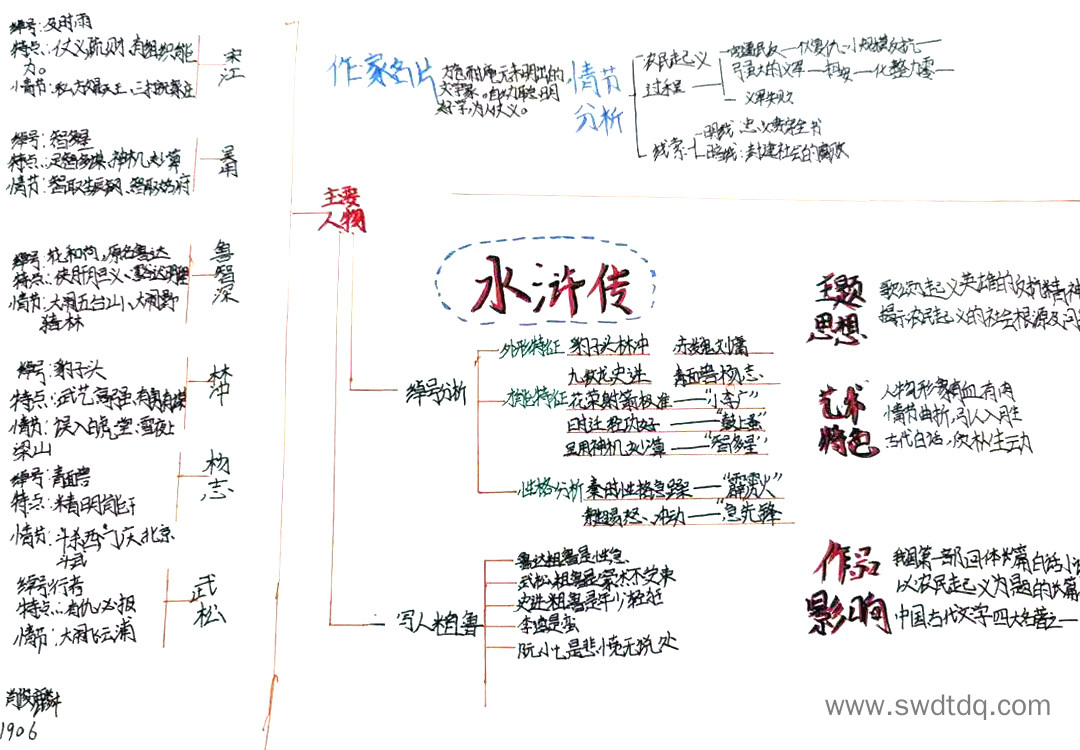 绰号:及时雨
特点:仗义疏财,有组织能
力。
情节:私放晁天王、三打祝家庄
宋江
绰号:智多星
特点:足智多谋、神机妙算
情节:智取生辰纲、智取
吴用
绰号:花和尚,原名鲁达
特点:
情节:大闹五台山、大闹野
猪林
鲁智深
绰号:豹子头
特点:武艺高强,有勇有谋
情节:误入白虎堂、雪夜上
梁山
林冲
绰号:青面兽
特点:精明能干
情节:斗杀西门庆,北京
斗武
杨志
绰号:行者
特点:有仇必报
情节:大闹飞云浦
武松
1906
作家名片
文学家。自幼聪明
好学,为人仗义。
情节
分析
农民起义
过程
义军失败
线索
明线:忠义贯穿全书
暗线:封建社会的腐败
主要
人物
水浒传
绰号分析
外形特征 豹子头林冲 赤发鬼刘唐
九纹龙史进 青面兽杨志
才能特征 花荣射箭极准——“小李广”
时迁轻功好——“鼓上蚤”
吴用神机妙算——“智多星”
性格分析 秦明性格急躁——“霹雳火”
索超易怒、冲动——“急先锋
写人粗鲁
鲁达粗鲁是性急
武松粗鲁是豪杰不受束
史进粗鲁是年少任性
李逵是蛮
阮小七是悲愤无说处
主题
思想
歌颂起义英雄的反抗精神
揭示农民起义的社会根源及问
艺术
特色
人物形象有血有肉
情节曲折,引人入胜
古代白话,
生动
作品
影响
我国第一部回体长篇白话小
以农民起义为题的长篇
中国古代文字四大名著之一
www.swdtdq.com